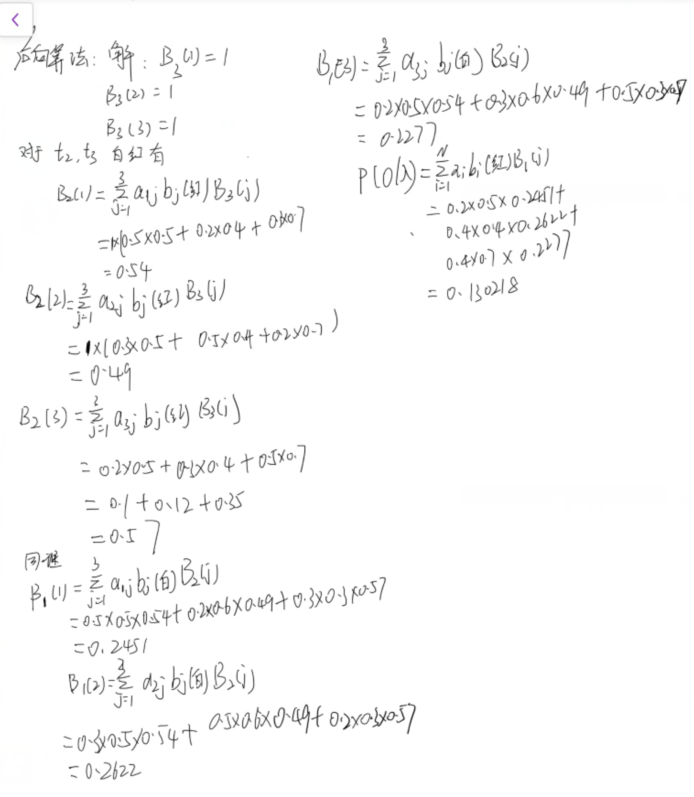 后向算法: 解: B₃(1)=1
B₃(2)=1
B₃(3)=1
对于 t₂,t₃ 白红有
B₂(1)=∑_{j=1}^{3} a₁ⱼ bⱼ(红) B₃(j)
=1×(0.5×0.5+0.2×0.4+0.3×0.7
=0.54
B₂(2)=∑_{j=1}^{3} a₂ⱼ bⱼ(红) B₃(j)
=1×(0.3×0.5+0.5×0.4+0.2×0.7)
=0.49
B₂(3)=∑_{j=1}^{3} a₃ⱼ bⱼ(红) B₃(j)
=0.2×0.5+0.3×0.4+0.5×0.7
=0.1+0.12+0.35
=0.57
同理
B₁(1)=∑_{j=1}^{3} a₁ⱼ bⱼ(白) B₂(j)
=0.5×0.5×0.54+0.2×0.6×0.49+0.3×0.3×0.57
=0.2451
B₁(2)=∑_{j=1}^{3} a₂ⱼ bⱼ(白) B₂(j)
=0.3×0.5×0.54+0.5×0.6×0.49+0.2×0.3×0.57
=0.2622
B₁(3)=∑_{j=1}^{3} a₃ⱼ bⱼ(白) B₂(j)
=0.2×0.5×0.54+0.3×0.6×0.49+0.5×0.3×0.57
=0.2277
P(O|λ)=∑_{i=1}^{N} aᵢ bᵢ(红) B₁(j)
=0.2×0.5×0.2451+
0.4×0.4×0.2622+
0.4×0.7×0.2277
=0.130218